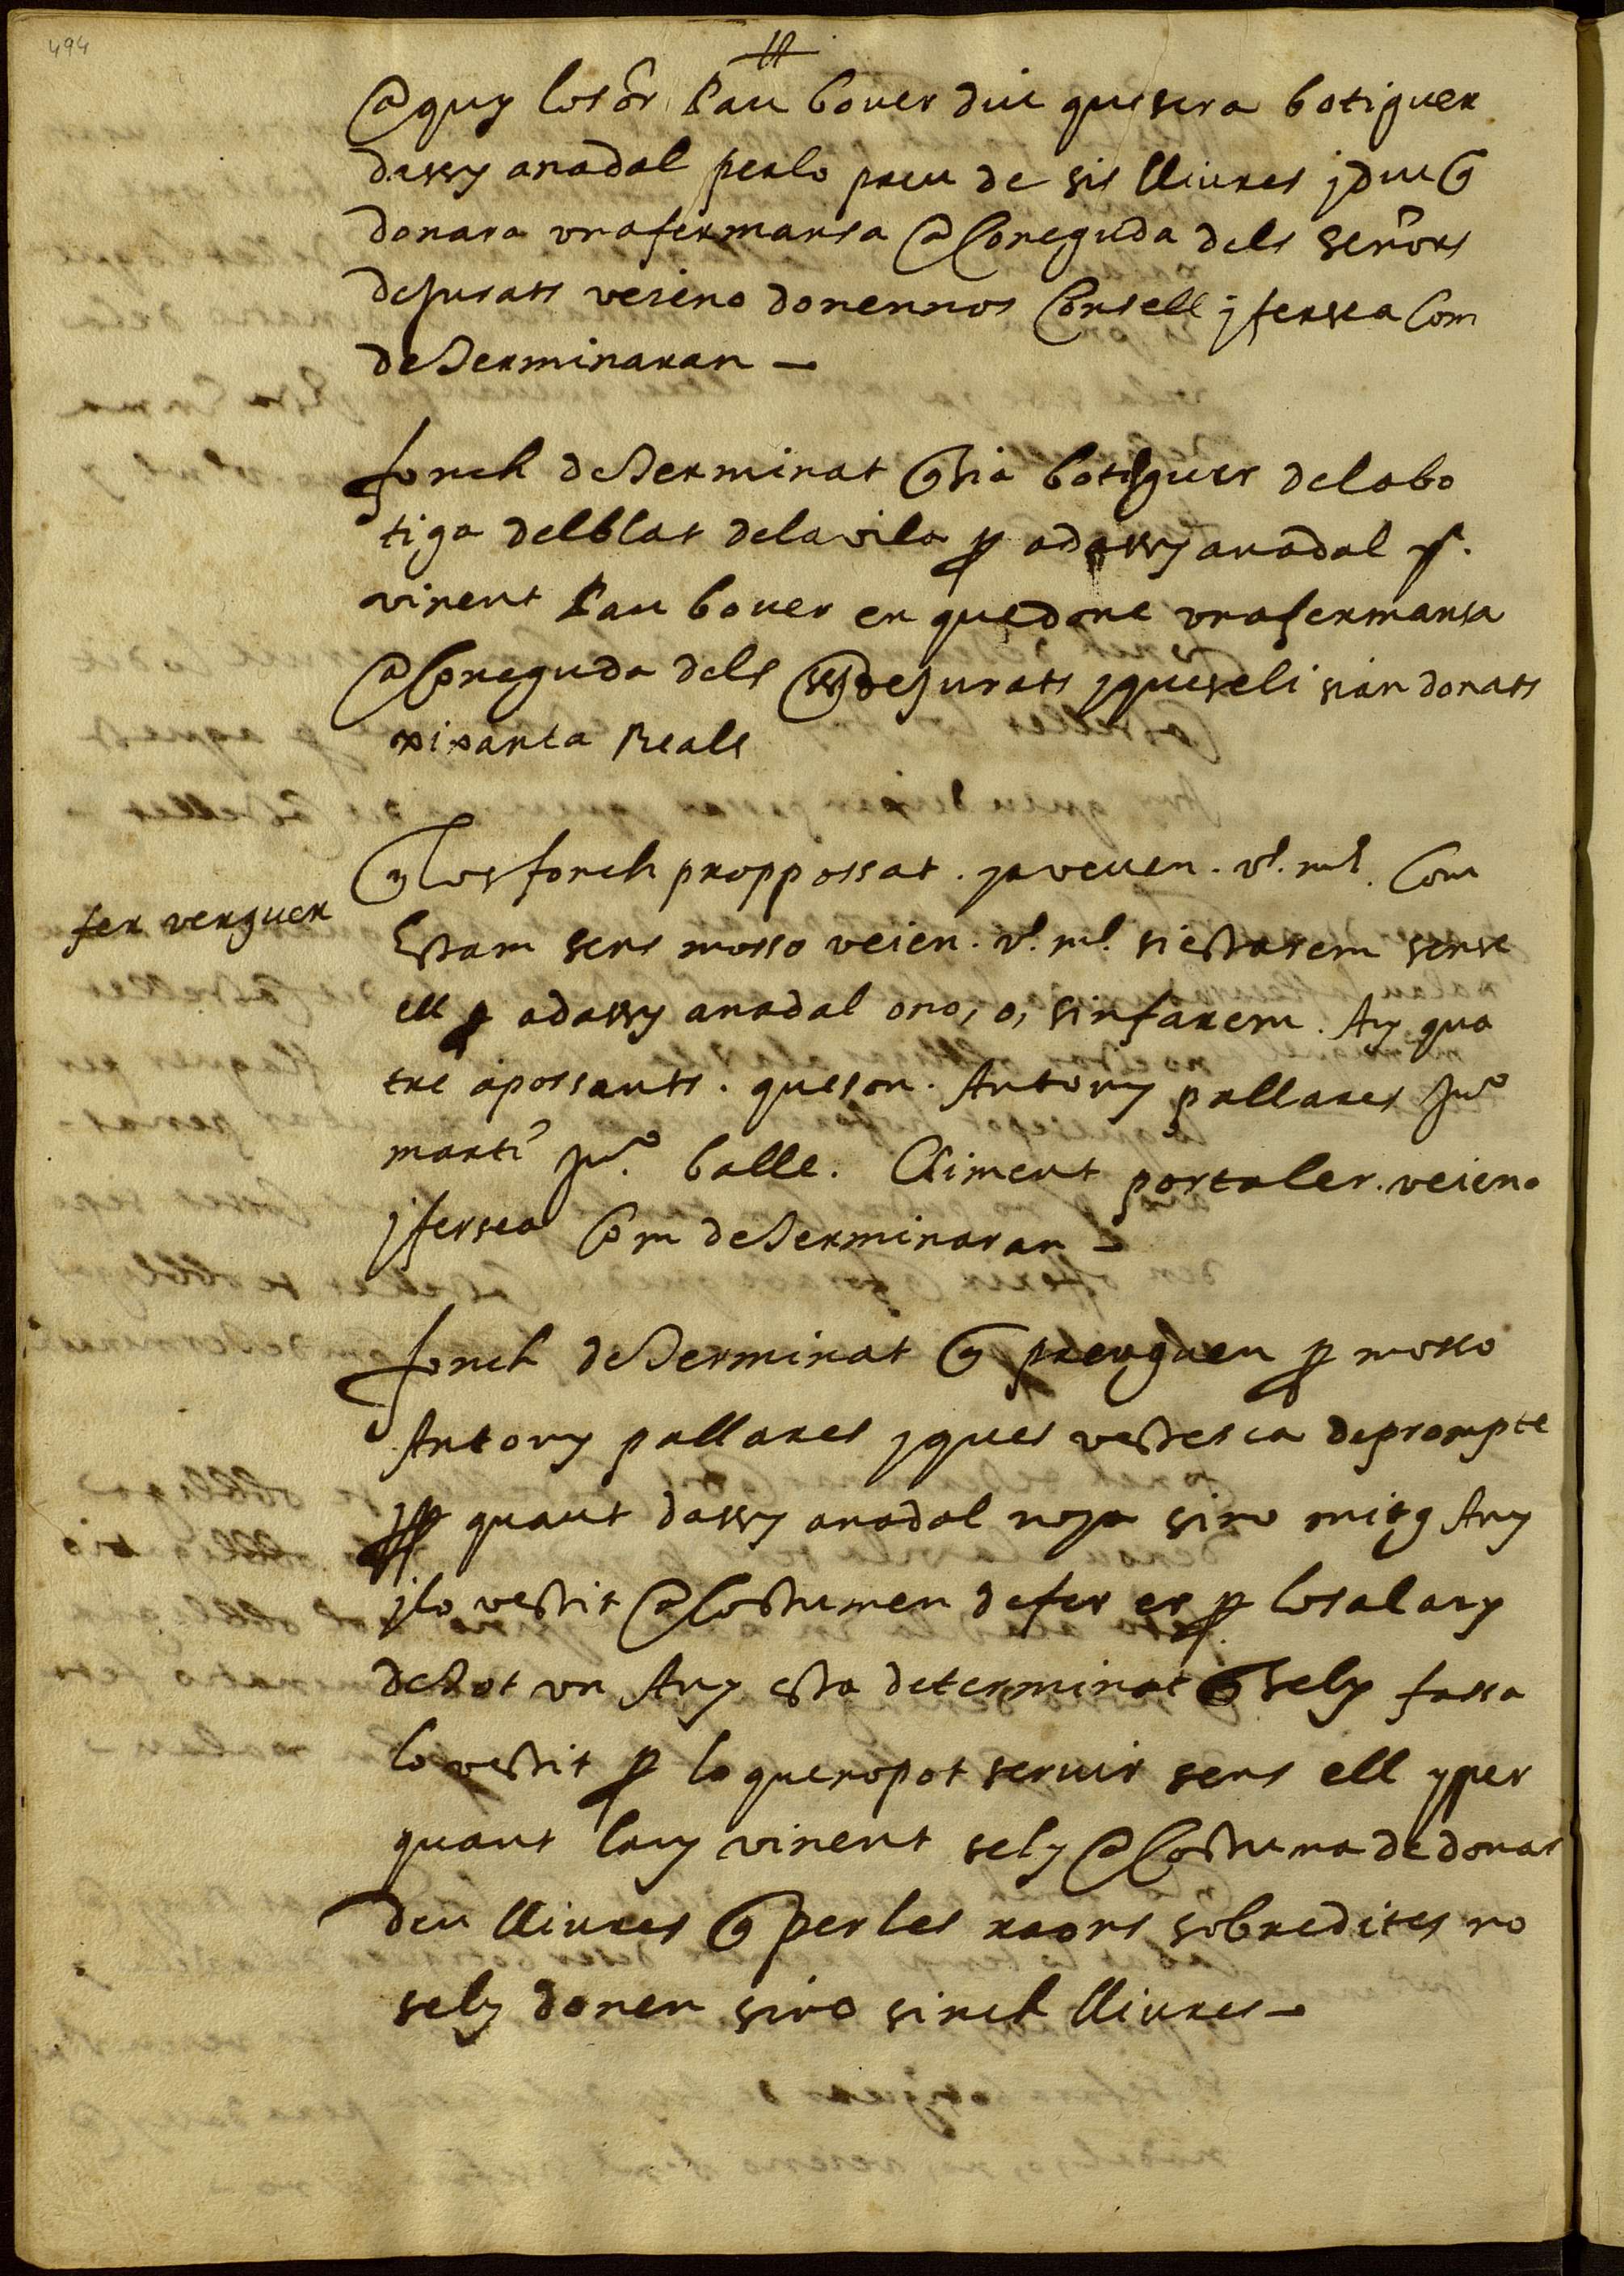 494
Aquy lo sor Pau bover diu que sera botiguer
dassy anadal perlo preu de sis lliures y diu q
donara una fermansa a Coneguda dels señors
de jurats veieno donennos Consell y fersea Com
determinaran —
fonch determinat q sia botiguer de la bo
tiga del blat de la vila p adassy anadal p.
vinent Pau bover en que done una fermansa
a Coneguda dels de jurats y que se li sian donats
xixanta Reals
fer verguer
los fonch proppossat . ja veuen . vs. ms. Com
Estam sens mosso veien . vs. ms. si estarem sense
ell p adassy anadal o no, o, sinfarem . Ay qua
tre apossants . que son . Antony pallares Jua
marti Jua. balle . Climent portaler . veieno
y fersea Com determinaran —
fonch determinat q prenguen p mosso
Antony pallares y ques vestesca de prompte
y p quant dassy anadal noya sino mitg Any
y lo vestit a Costumen de fer es p lo salary
de tot un Any esta determinat q sely fassa
lo vestit p lo que no pot servir sens ell y per
quant lany vinent sely a Costuma de donar
deu lliures q per les raons sobredites no
sely donen sino sinch lliures —